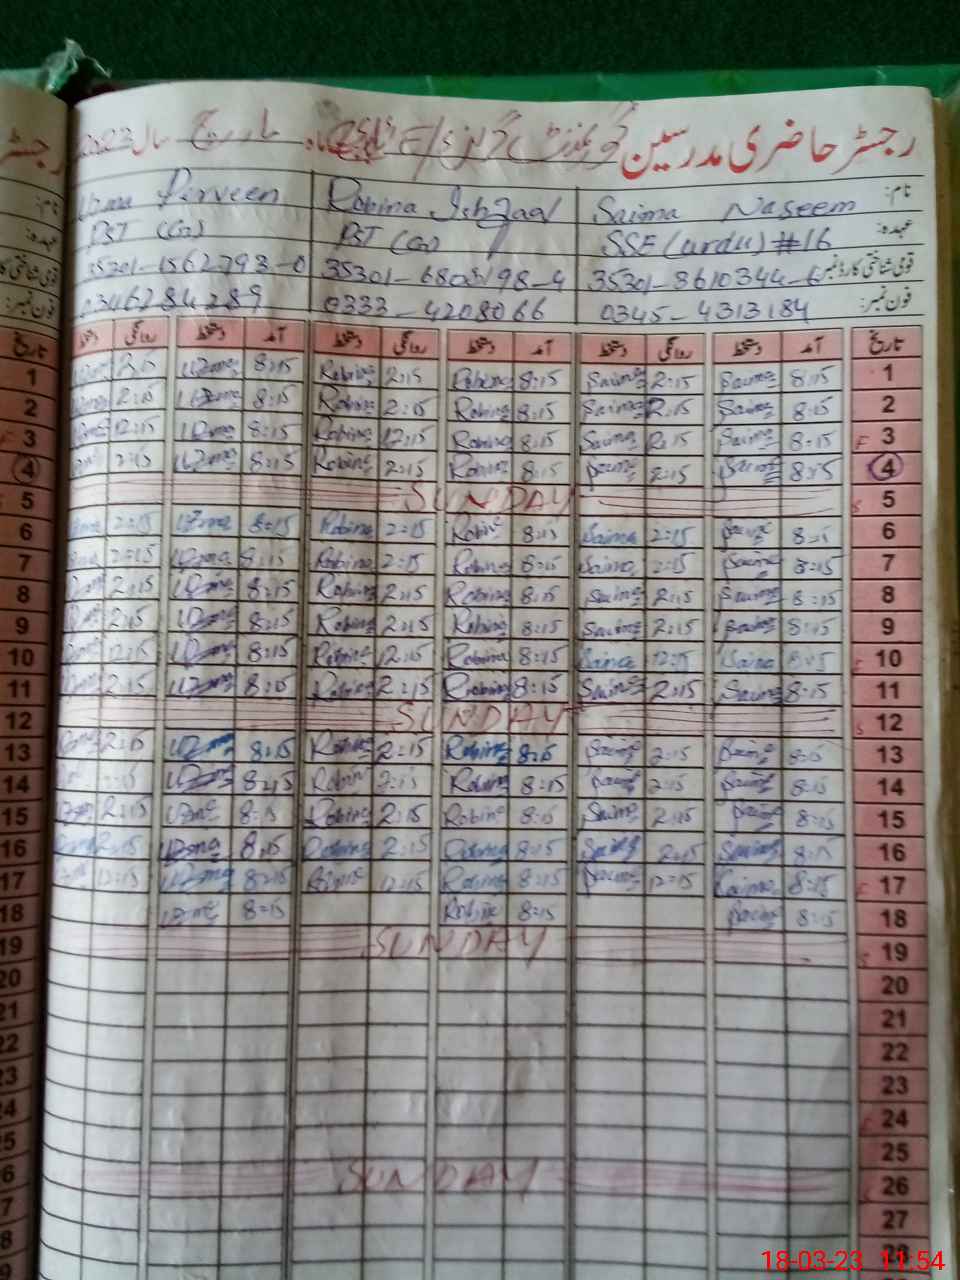 رجسٹر حاضری مدرسین گورنمنٹ گرلز ماہ مارچ سال 2023
نام: Saima Naseem Robina Ishfaq Uzma Perveen
عہدہ: SSE (urdu) #16 PST (Gs) PST (Gs)
قومی شناختی کارڈ نمبر 35301-8610344-6 35301-6808198-4 35301-1562793-0
فون نمبر: 0345-4313184 0333-4208066 0346284289
تاریخ آمد دستخط روانگی دستخط آمد دستخط روانگی دستخط آمد دستخط روانگی دستخط
1 8:15 Saima 2:15 Saima 8:15 Robina 2:15 Robina 8:15 Uzma 2:15
2 8:15 Saima 2:15 Saima 8:15 Robina 2:15 Robina 8:15 Uzma 2:15
F 3 8:15 Saima 12:15 Saima 8:15 Robina 12:15 Robina 8:15 Uzma 12:15
4 8:15 Saima 2:15 Saima 8:15 Robina 2:15 Robina 8:15 Uzma 2:15
S 5 SUNDAY
6 8:15 Saima 2:15 Saima 8:15 Robina 2:15 Robina 8:15 Uzma 2:15
7 8:15 Saima 2:15 Saima 8:15 Robina 2:15 Robina 8:15 Uzma 2:15
8 8:15 Saima 2:15 Saima 8:15 Robina 2:15 Robina 8:15 Uzma 2:15
9 8:15 Saima 2:15 Saima 8:15 Robina 2:15 Robina 8:15 Uzma 2:15
F 10 8:15 Saima 12:15 Saima 8:15 Robina 12:15 Robina 8:15 Uzma 12:15
11 8:15 Saima 2:15 Saima 8:15 Robina 2:15 Robina 8:15 Uzma 2:15
S 12 SUNDAY
13 8:15 Saima 2:15 Saima 8:15 Robina 2:15 Robina 8:15 Uzma 2:15
14 8:15 Saima 2:15 Saima 8:15 Robina 2:15 Robina 8:15 Uzma
15 8:15 Saima 2:15 Saima 8:15 Robina 2:15 Robina 8:15 Uzma 2:15
16 8:15 Saima 2:15 Saima 8:15 Robina 2:15 Robina 8:15 Uzma 2:15
F 17 8:15 Saima 12:15 Saima 8:15 Robina 12:15 Robina 8:15 Uzma 12:15
18 8:15 Saima 8:15 Robina 8:15 Uzma
S 19 SUNDAY
20
21
22
23
F 24
25
26 SUNDAY
27
28
18-03-23 11:54